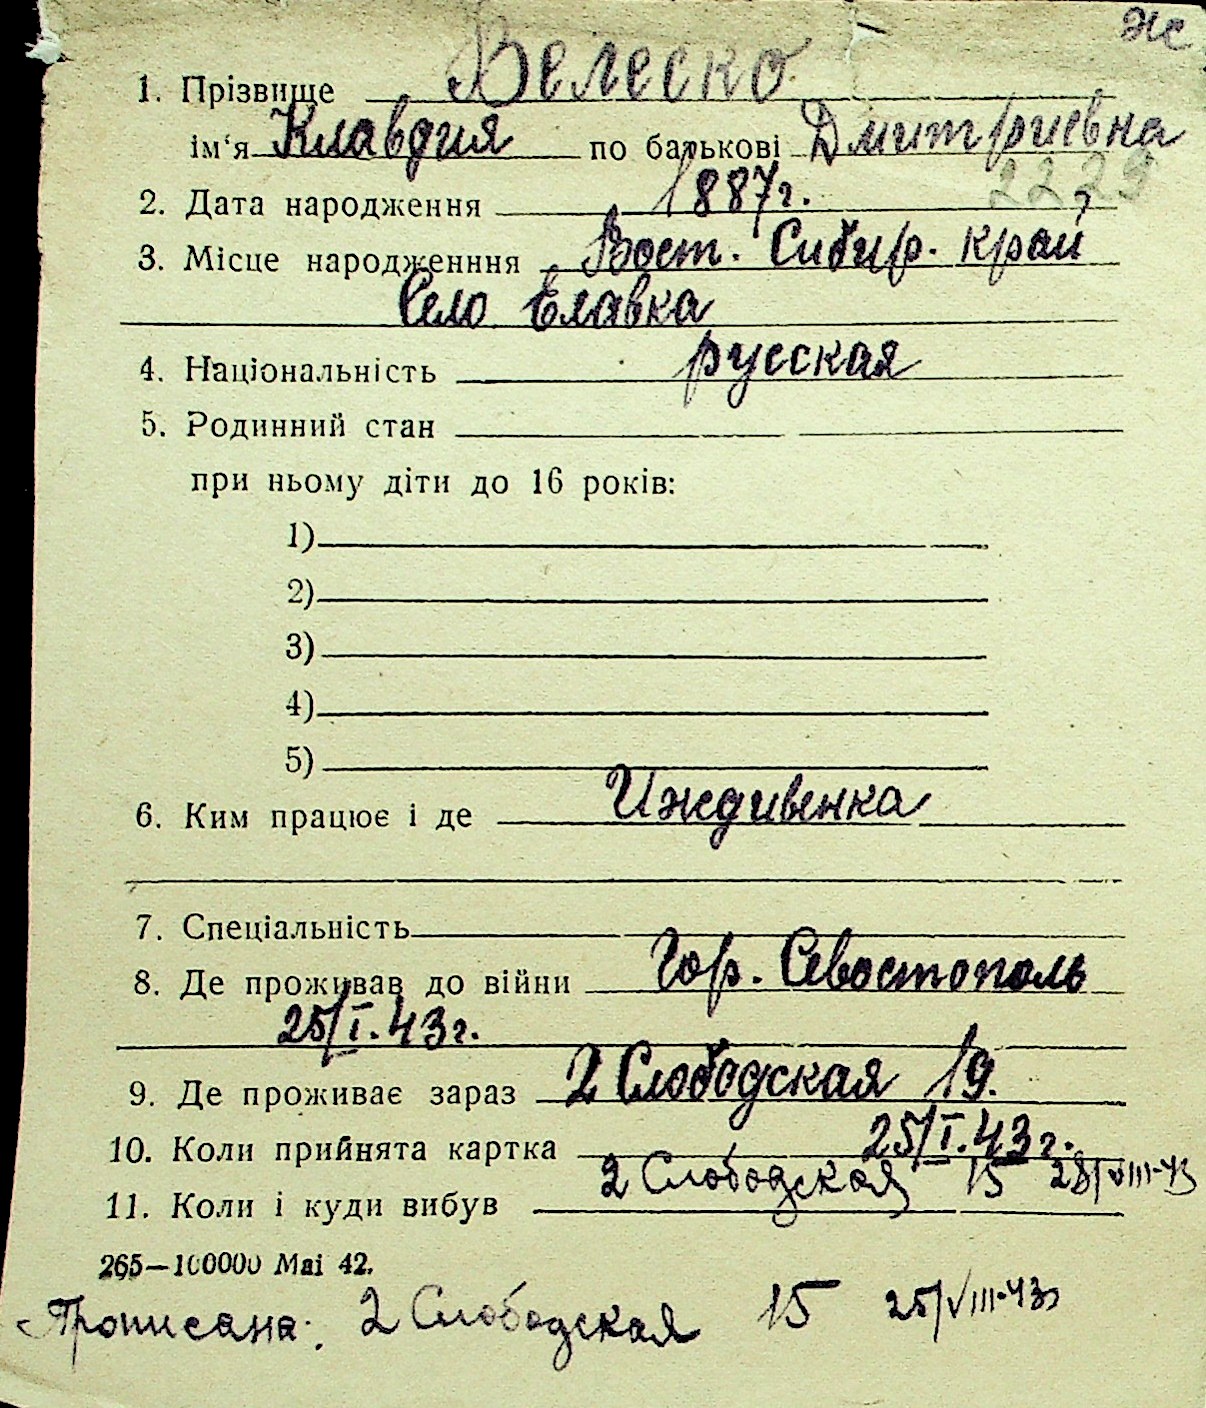 жс
1. Прізвище Велеско
ім‘я Клавдия по батькові Дмитриевна
2229
2. Дата народження 1887г.
3. Місце народженння Вост. Сибир. край
Село Елавка
4. Національність русская
5. Родинний стан
при ньому діти до 16 років:
1)
2)
3)
4)
5)
6. Ким працює і де Иждивенка
7. Спеціальність
8. Де проживав до війни Гор. Севостополь
25/I.43г.
9. Де проживає зараз 2 Слободская 19.
10. Коли прийнята картка 25/I.43г.
11. Коли і куди вибув 2 Слободская 15 28/VIII-43
265—100000 Mai 42.
Прописана: 2 Слободская 15 25/VIII-43г